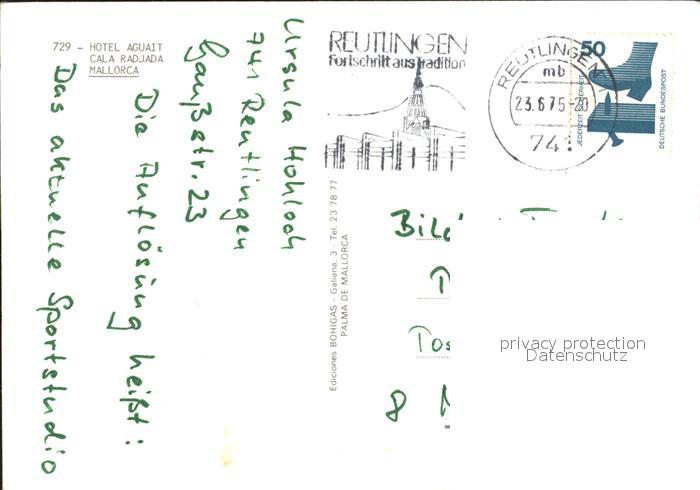 729 - HOTEL AGUAIT
CALA RADJADA
MALLORCA
Ursula Hohloch
741 Reutlingen
Gaußstr. 23
Die Auflösung heißt:
Das aktuelle Sportstudio
Ediciones BOHIGAS - Galiana, 3 - Tel. 23 78 77
PALMA DE MALLORCA
REUTLINGEN
Fortschritt aus Tradition
REUTLINGEN
mb
23.6.75-20
741
50
JEDERZEIT SICHERHEIT
DEUTSCHE BUNDESPOST
8
privacy protection
Datenschutz